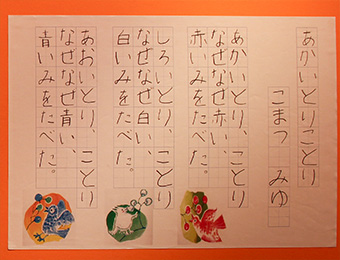 あかいとりことり
こまつ みゆ
あかいとり、ことり
なぜなぜ赤い、
赤いみをたべた。
しろいとり、ことり
なぜなぜ白い、
白いみをたべた。
あおいとり、ことり
なぜなぜ青い、
青いみをたべた。